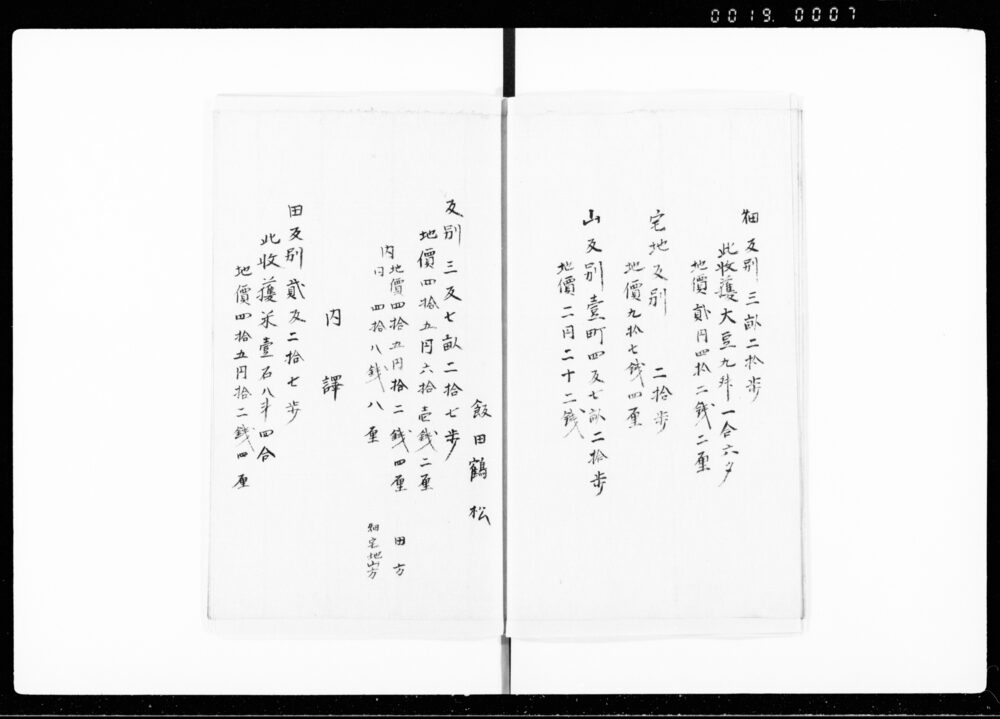 0019. 0007
畑反別三畝二拾歩
此收獲大豆九舛一合六夕
地價貳円四拾二銭二厘
宅地反別 二拾歩
地價九拾七銭四厘
山反別壹町四反七畝二拾歩
地價二円二十二銭
飯田鶴松
反別三反七畝二拾七歩
地價四拾五円六拾壱銭二厘
内地價四拾五円拾二銭四厘 田方
内日四拾八銭八厘 畑宅地山方
内譯
田反別貳反二拾七歩
此收獲米壹石八斗四合
地價四拾五円拾二銭四厘